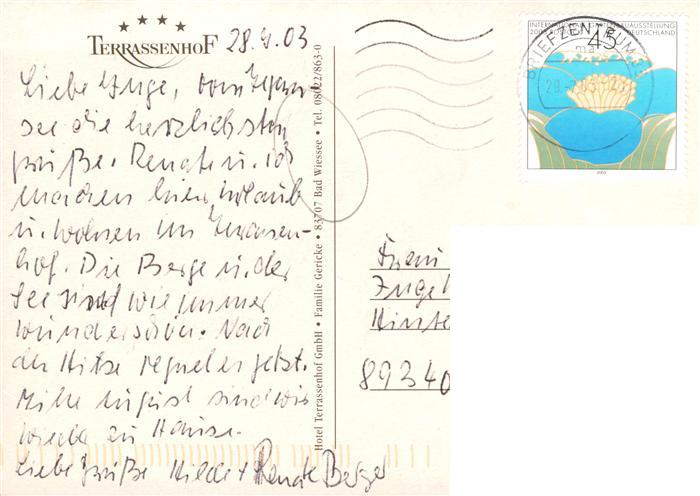 TERRASSENHOF 28.7.03
Liebe Inge, vom Tegern-
see die herzlichsten
Grüße. Renate u. ich
machen hier Urlaub
u. wohnen im Terrassen-
hof. Die Berge u. der
See sind wie immer
wunderschön. Nach
der Hitze regnet es jetzt.
Mitte August sind wir
wieder zu Hause.
Liebe Grüße Hilde + Renate Berger
Hotel Terrassenhof GmbH • Familie Gericke • 83707 Bad Wiessee • Tel. 08022/863-0
INTERNATIONALE GARTENBAUAUSSTELLUNG
2003 ROSTOCK DEUTSCHLAND
45
BRIEFZENTRUM
2003
Frau
Inge
Hinte
89340